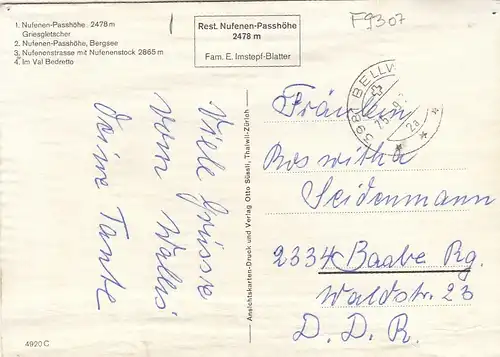 1. Nufenen-Passhöhe 2478 m
Griesgletscher
2. Nufenen-Passhöhe, Bergsee
3. Nufenenstrasse mit Nufenenstock 2865 m
4. Im Val Bedretto
Rest. Nufenen-Passhöhe
2478 m
Fam. E. Imstepf-Blatter
F9307
Viele Grüsse
vom Wallis
deine Tante
Ansichtskarten-Druck und Verlag Otto Süssli, Thalwil-Zürich
BELLW
2a
Fräulein
Roswitha
Seidenmann
2334 Baabe Rg.
Waldstr. 23
D. D. R.
4920 C